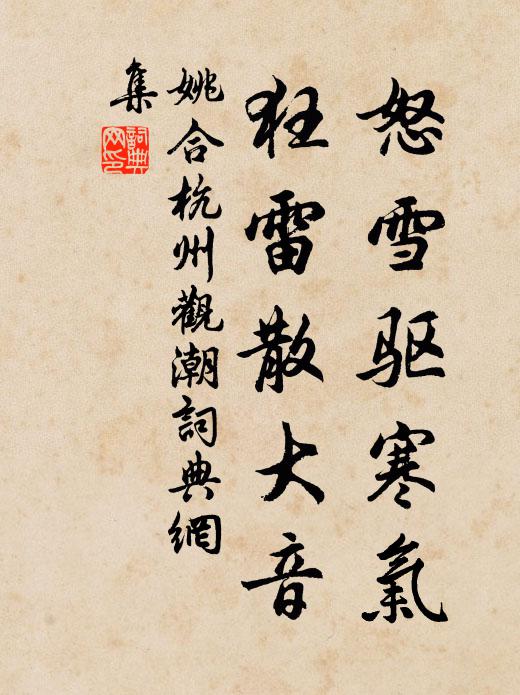 怒雪驱寒氣
狂雷散大音
姚合杭州觀潮詞典網
集
詞典网印